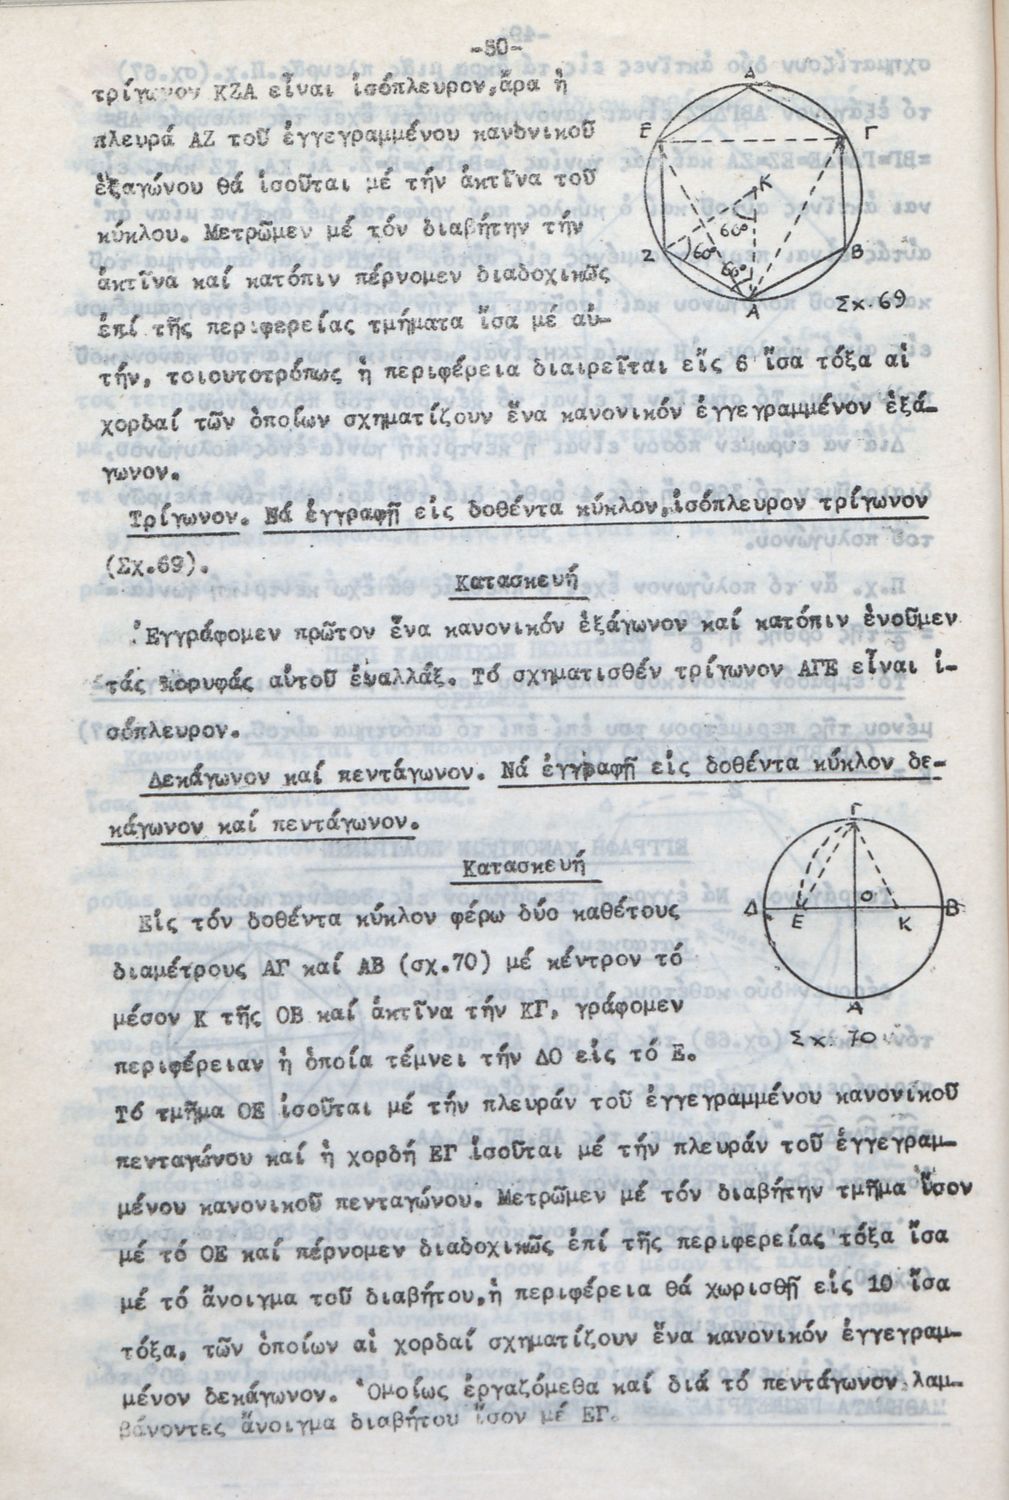 -50-
τρίγωνον ΚΖΑ εἶναι ἰσόπλευρον, ἄρα ἡ
πλευρά ΑΖ τοῦ ἐγγεγραμμένου κανονικοῦ
ἑξαγώνου θά ἰσοῦται μέ τήν ἀκτῖνα τοῦ
κύκλου. Μετρῶμεν μέ τόν διαβήτην τήν
ἀκτῖνα καί κατόπιν πέρνομεν διαδοχικῶς
ἐπί τῆς περιφερείας τμήματα ἴσα μέ αὐ-
τήν, τοιουτοτρόπως ἡ περιφέρεια διαιρεῖται εἴς 6 ἴσα τόξα αἱ
χορδαί τῶν ὁποίων σχηματίζουν ἕνα κανονικόν ἐγγεγραμμένον ἑξά-
γωνον.
Δ
Ε
Γ
Κ
60°
Ζ
60°
60°
Β
Α
Σχ. 69
Τρίγωνον. Νά ἐγγραφῇ εἰς δοθέντα κύκλον, ἰσόπλευρον τρίγωνον
(Σχ.69).
Κατασκευή
Ἐγγράφομεν πρῶτον ἕνα κανονικόν ἑξάγωνον καί κατόπιν ἑνοῦμεν
τάς κορυφάς αὐτοῦ ἐναλλάξ. Τό σχηματισθέν τρίγωνον ΑΓΕ εἶναι ἰ-
σόπλευρον.
Δεκάγωνον καί πεντάγωνον. Νά ἐγγραφῇ εἰς δοθέντα κύκλον δε-
κάγωνον καί πεντάγωνον.
Κατασκευή
Εἰς τόν δοθέντα κύκλον φέρω δύο καθέτους
διαμέτρους ΑΓ καί ΑΒ (σχ.70) μέ κέντρον τό
μέσον Κ τῆς ΟΒ καί ἀκτῖνα τήν ΚΓ, γράφομεν
περιφέρειαν ἡ ὁποία τέμνει τήν ΔΟ εἰς τό Ε.
Γ
Δ
Ο
Β
Ε
Κ
Α
Σχ. 70
Τό τμῆμα ΟΕ ἰσοῦται μέ τήν πλευράν τοῦ ἐγγεγραμμένου κανονικοῦ
πενταγώνου καί ἡ χορδή ΕΓ ἰσοῦται μέ τήν πλευράν τοῦ ἐγγεγραμ-
μένου κανονικοῦ πενταγώνου. Μετρῶμεν μέ τόν διαβήτην τμῆμα ἴσον
μέ τό ΟΕ καί πέρνομεν διαδοχικῶς ἐπί τῆς περιφερείας τόξα ἴσα
μέ τό ἄνοιγμα τοῦ διαβήτου, ἡ περιφέρεια θά χωρισθῇ εἰς 10 ἴσα
τόξα, τῶν ὁποίων αἱ χορδαί σχηματίζουν ἕνα κανονικόν ἐγγεγραμ-
μένον δεκάγωνον. Ὁμοίως ἐργαζόμεθα καί διά τό πεντάγωνον λαμ-
βάνοντες ἄνοιγμα διαβήτου ἴσον μέ ΕΓ.